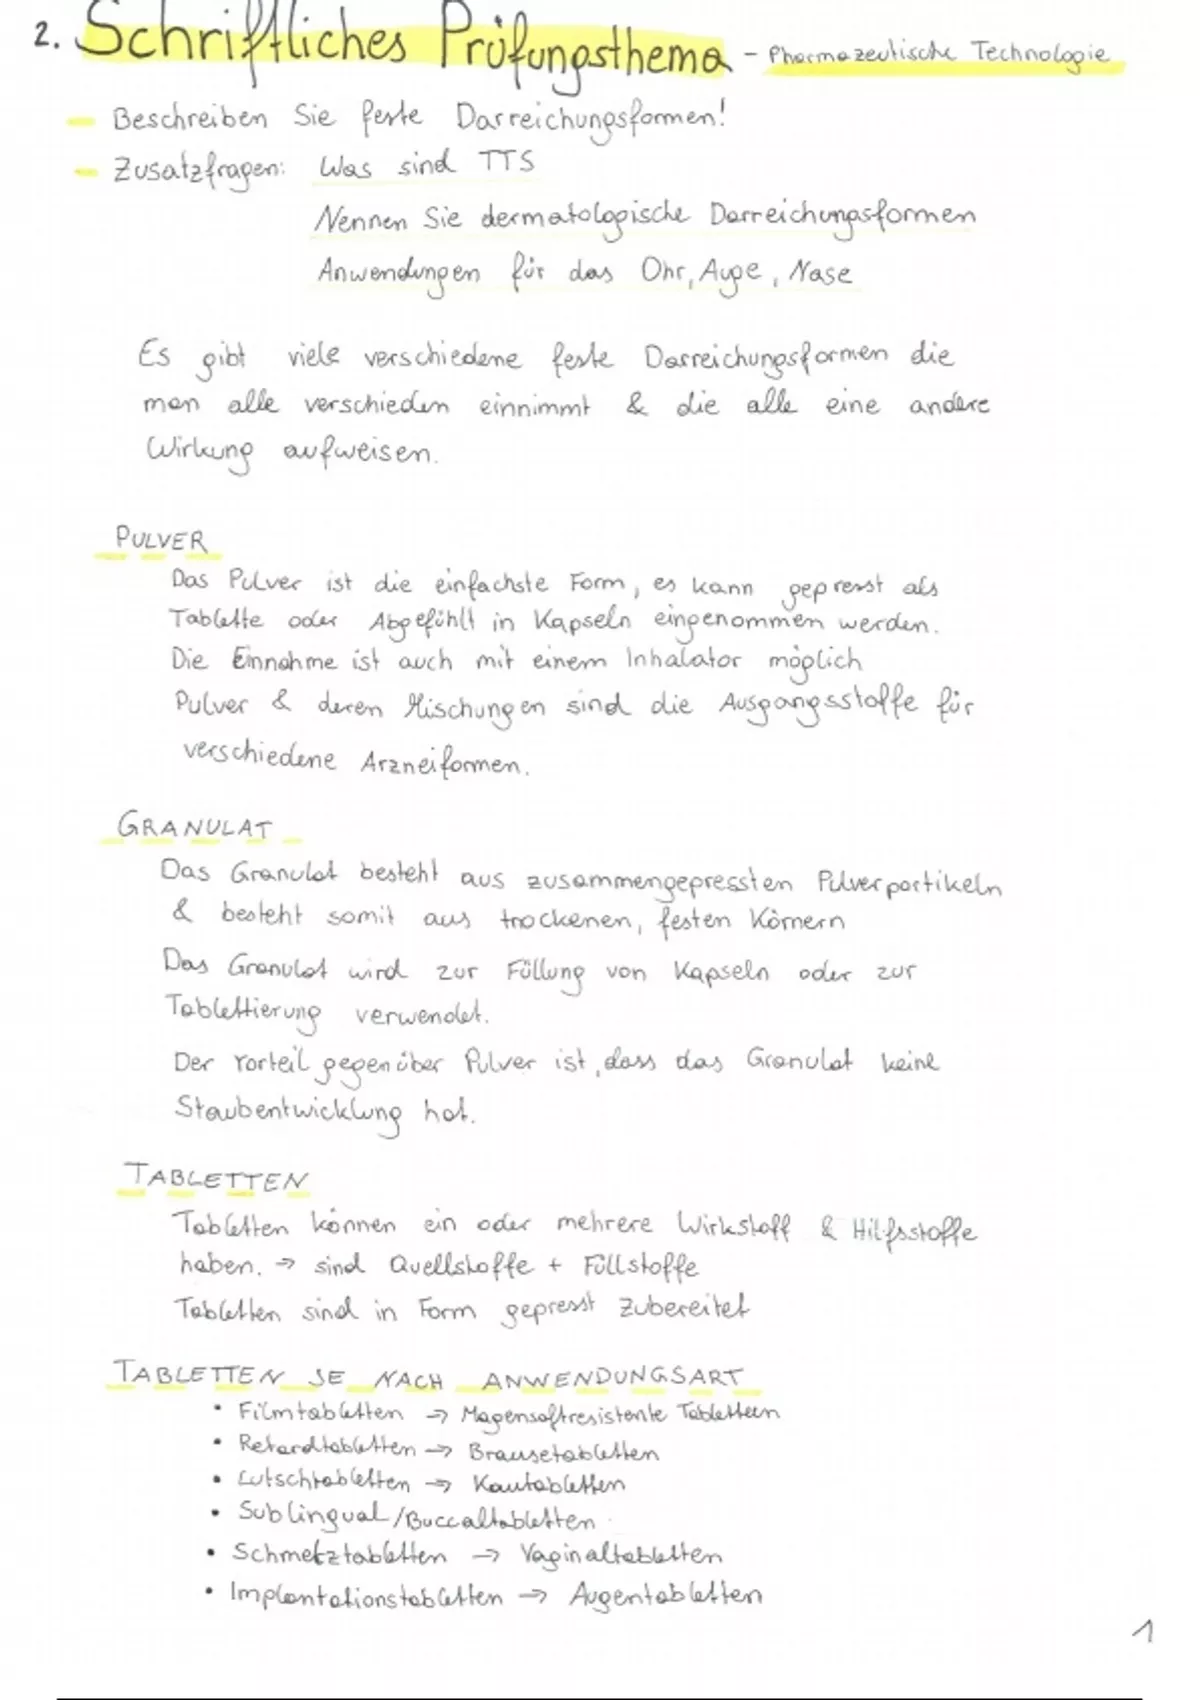 2. Schriftliches Prüfungsthema - Pharmazeutische Technologie
- Beschreiben Sie feste Darreichungsformen!
- Zusatzfragen: Was sind TTS
Nennen Sie dermatologische Darreichungsformen
Anwendungen für das Ohr, Auge, Nase
Es gibt viele verschiedene feste Darreichungsformen die
man alle verschieden einnimmt & die alle eine andere
Wirkung aufweisen.
PULVER
Das Pulver ist die einfachste Form, es kann gepresst als
Tablette oder Abgefühlt in Kapseln eingenommen werden.
Die Einnahme ist auch mit einem Inhalator möglich
Pulver & deren Mischungen sind die Ausgangsstoffe für
verschiedene Arzneiformen.
GRANULAT
Das Granulat besteht aus zusammengepressten Pulverpartikeln
& besteht somit aus trockenen, festen Körnern
Das Granulat wird zur Füllung von Kapseln oder zur
Tablettierung verwendet.
Der Vorteil gegenüber Pulver ist, dass das Granulat keine
Staubentwicklung hat.
TABLETTEN
Tabletten können ein oder mehrere Wirkstoff & Hilfsstoffe
haben. → sind Quellstoffe + Füllstoffe
Tabletten sind in Form gepresst Zubereitet
TABLETTEN JE NACH ANWENDUNGSART
• Filmtabletten → Magensaftresistente Tabletten
• Retardtabletten → Brausetabletten
• Lutschtabletten → Kautabletten
• Sublingual/Buccaltabletten
• Schmelztabletten → Vaginaltabletten
• Implantationstabletten → Augentabletten
1